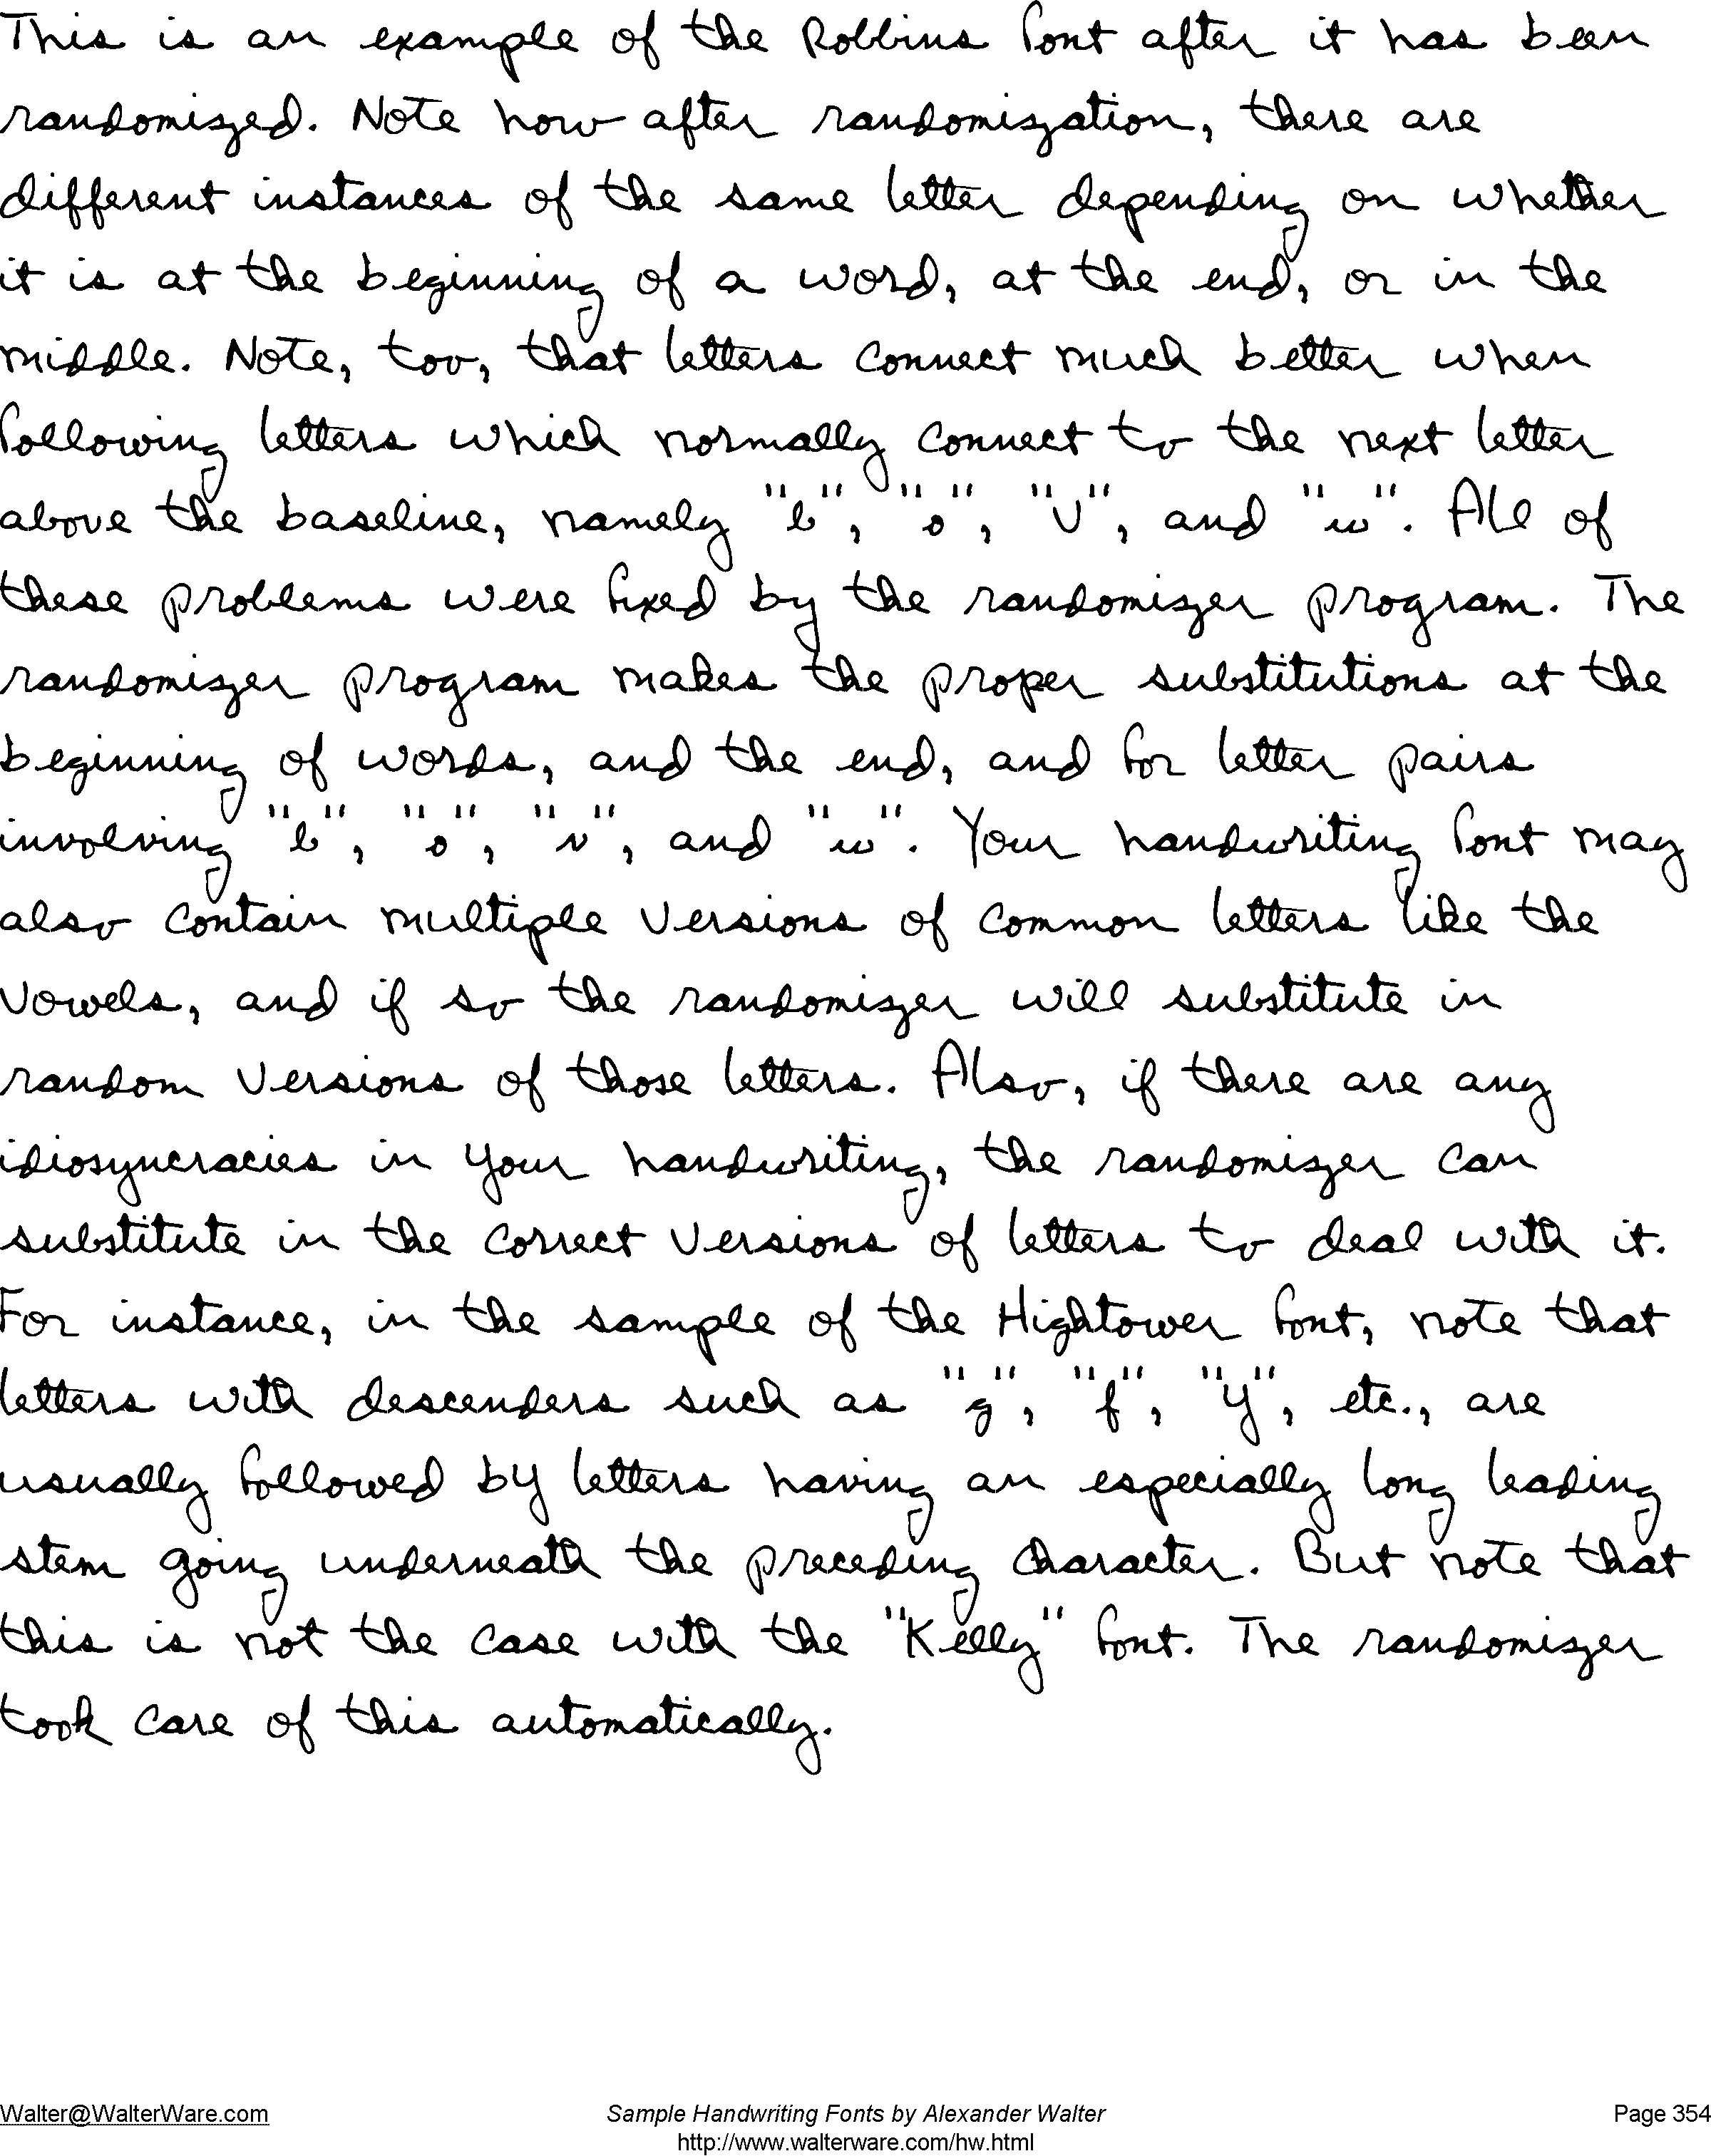 This is an example of the Robbins font after it has been
randomized. Note how after randomization, there are
different instances of the same letter depending on whether
it is at the beginning of a word, at the end, or in the
middle. Note, too, that letters connect much better when
following letters which normally connect to the next letter
above the baseline, namely "b", "o", "V", and "w". All of
these problems were fixed by the randomizer program. The
randomizer program makes the proper substitutions at the
beginning of words, and the end, and for letter pairs
involving "b", "o", "v", and "w". Your handwriting font may
also contain multiple versions of common letters like the
vowels, and if so the randomizer will substitute in
random versions of those letters. Also, if there are any
idiosyncracies in your handwriting, the randomizer can
substitute in the correct versions of letters to deal with it.
For instance, in the sample of the Hightower font, note that
letters with descenders such as "g", "f", "y", etc., are
usually followed by letters having an especially long leading
stem going underneath the preceding character. But note that
this is not the case with the "Kelly" font. The randomizer
took care of this automatically.
Walter@WalterWare.com Sample Handwriting Fonts by Alexander Walter Page 354
http://www.walterware.com/hw.html